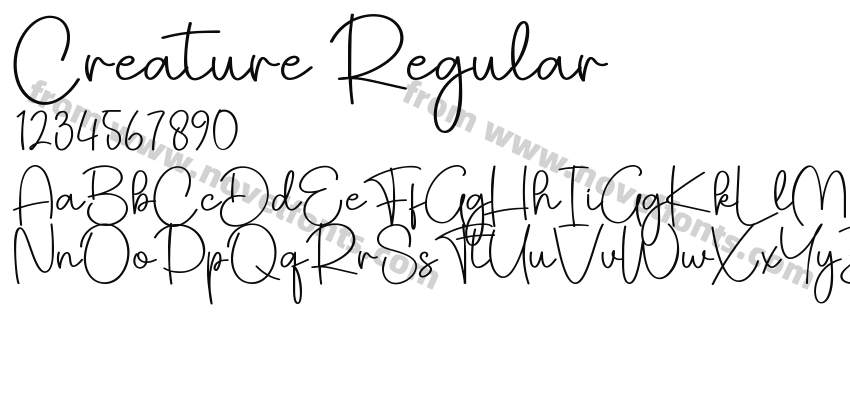 Creature Regular
1234567890
AaBbCcDdEeFfGgHhIiGgKkLlM
NnOoPpQqRrSsTtUuVvWwXxYy
from www.novelfonts.com
from www.novelfonts.com